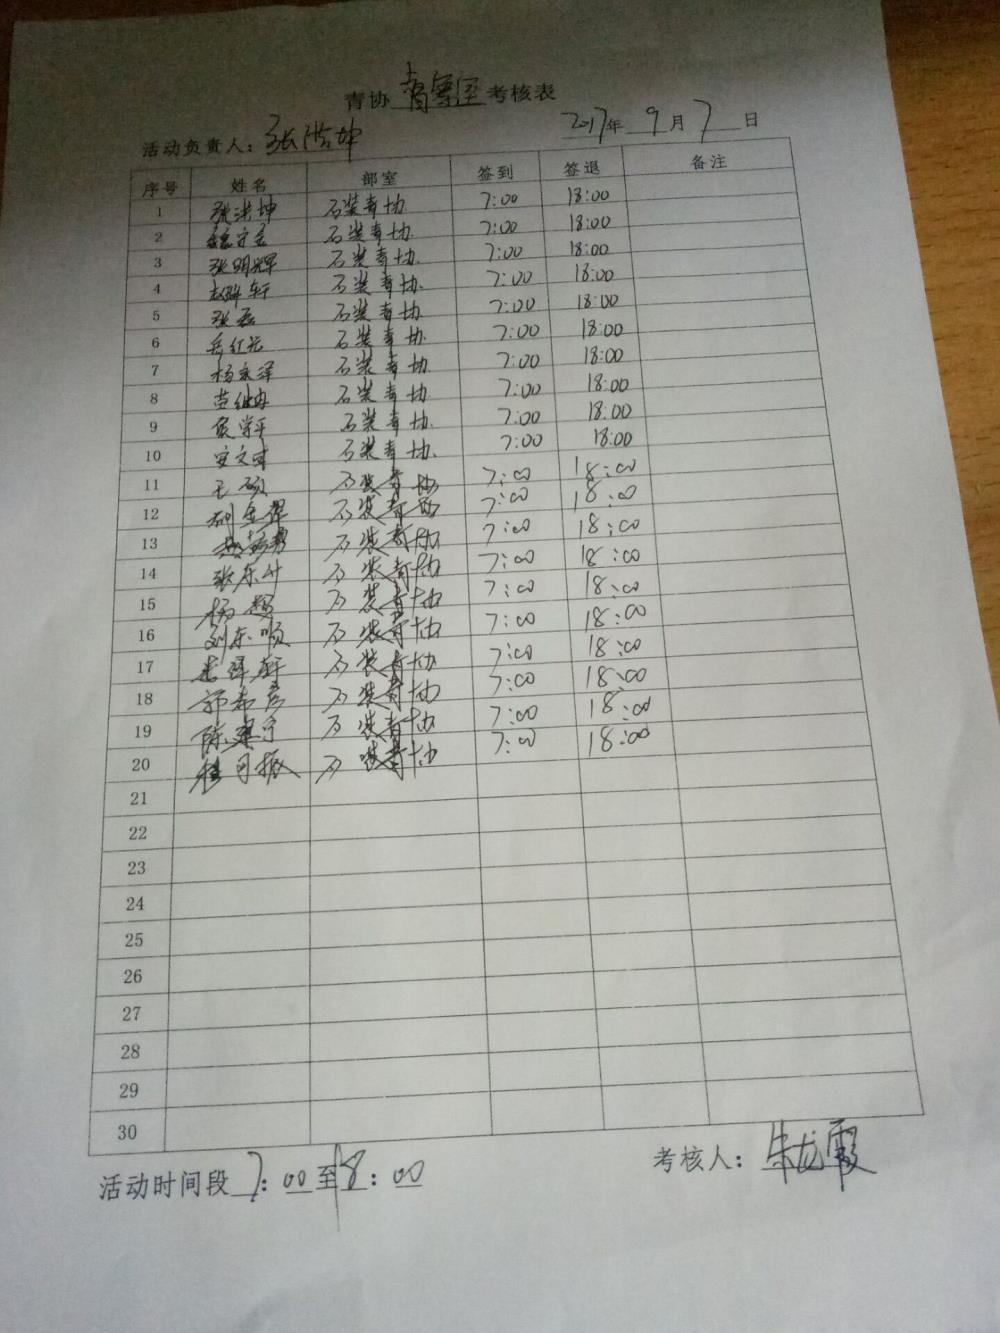 青协 考核表
活动负责人：张洪坤 2017年 9月 7日
序号 姓名 部室 签到 签退 备注
1 张洪坤 石装青协 7:00 18:00
2 石装青协 7:00 18:00
3 张明辉 石装青协. 7:00 18:00
4 赵 轩 石装青协. 7:00 18:00
5 张磊 石装青协 7:00 18:00
6 岳红光 石装青协. 7:00 18:00
7 杨永泽 石装青协 7:00 18:00
8 石装青协 7:00 18:00
9 侯学平 石装青协 7:00 18:00
10 安文 石装青协. 7:00 18:00
11 王硕 石装青协 7:00 18:00
12 刘金 石装青协 7:00 18:00
13 石装青协 7:00 18:00
14 张东升 石装青协 7:00 18:00
15 杨超 石装青协 7:00 18:00
16 刘东顺 石装青协 7:00 18:00
17 泽轩 石装青协 7:00 18:00
18 石装青协 7:00 18:00
19 陈建宁 石装青协 7:00 18:00
20 石装青协 7:00 18:00
21
22
23
24
25
26
27
28
29
30
活动时间段 7：00至18：00 考核人：朱龙霞